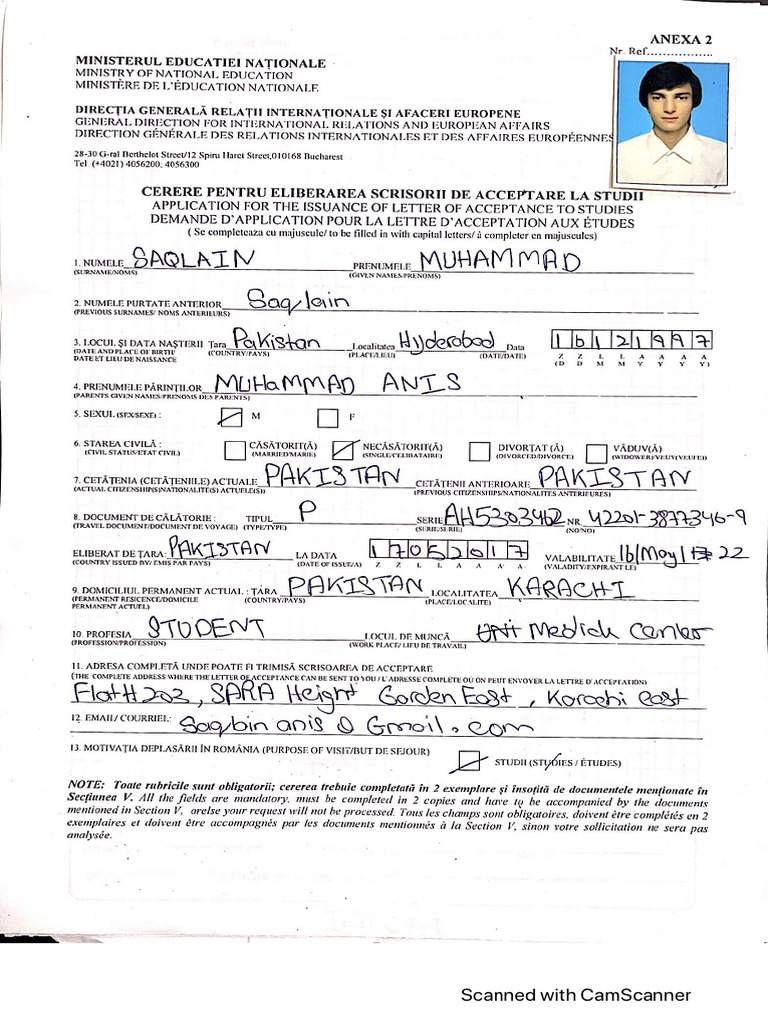 ANEXA 2
Nr. Ref.................
MINISTERUL EDUCATIEI NAȚIONALE
MINISTRY OF NATIONAL EDUCATION
MINISTÈRE DE L'ÉDUCATION NATIONALE
DIRECȚIA GENERALĂ RELAȚII INTERNAȚIONALE ȘI AFACERI EUROPENE
GENERAL DIRECTION FOR INTERNATIONAL RELATIONS AND EUROPEAN AFFAIRS
DIRECTION GÉNÉRALE DES RELATIONS INTERNATIONALES ET DES AFFAIRES EUROPÉENNES
28-30 G-ral Berthelot Street/12 Spiru Haret Street,010168 Bucharest
Tel. (+4021) 4056200; 4056300
CERERE PENTRU ELIBERAREA SCRISORII DE ACCEPTARE LA STUDII
APPLICATION FOR THE ISSUANCE OF LETTER OF ACCEPTANCE TO STUDIES
DEMANDE D'APPLICATION POUR LA LETTRE D'ACCEPTATION AUX ÉTUDES
( Se completeaza cu majuscule/ to be filled in with capital letters/ à completer en majuscules)
1. NUMELE SAQLAIN PRENUMELE MUHAMMAD
(SURNAME/NOMS) (GIVEN NAMES/PRENOMS)
2. NUMELE PURTATE ANTERIOR Saqlain
(PREVIOUS SURNAMES/ NOMS ANTERIEURS)
3. LOCUL ȘI DATA NAȘTERII Țara Pakistan Localitatea Hyderabad Data 16121997
(DATE AND PLACE OF BIRTH (COUNTRY/PAYS) (PLACE/LIEU) (DATE/DATE) Z Z L L A A A A
DATE ET LIEU DE NAISSANCE (D D M M Y Y Y Y)
4. PRENUMELE PĂRINȚILOR MUHAMMAD ANIS
(PARENTS GIVEN NAMES/PRENOMS DES PARENTS)
5. SEXUL (SEX/SEXE) : M F
6. STAREA CIVILĂ : CĂSĂTORIT(Ă) NECĂSĂTORIT(Ă) DIVORȚAT (Ă) VĂDUV(Ă)
(CIVIL STATUS/ETAT CIVIL) (MARRIED/MARIE) (SINGLE/CELIBATAIRE) (DIVORCED/DIVORCE) (WIDOWER/VEUV(VEUFE))
7. CETĂȚENIA (CETĂȚENIILE) ACTUALE PAKISTAN CETĂȚENII ANTERIOARE PAKISTAN
(ACTUAL CITIZENSHIP(S)/NATIONALITÉ(S) ACTUELE(S)) (PREVIOUS CITIZENSHIPS/NATIONALITES ANTÉRIEURES)
8. DOCUMENT DE CĂLĂTORIE : TIPUL P SERIE AH5303462 NR. 42201-3877346-9
(TRAVEL DOCUMENT/DOCUMENT DE VOYAGE) (TYPE/TYPE) (SERIE/SERIE) (NO/NO)
ELIBERAT DE ȚARA: PAKISTAN LA DATA 17052017 VALABILITATE 16/May/ 22
(COUNTRY ISSUED BY/ EMIS PAR PAYS) (DATE OF ISSUE/A) Z Z L L A A A A (VALADITY/EXPIRANT LE)
9. DOMICILIUL PERMANENT ACTUAL : ȚARA PAKISTAN LOCALITATEA KARACHI
(PERMANENT RESIDENCE/DOMICILE (COUNTRY/PAYS) (PLACE/LOCALITE)
PERMANENT ACTUEL)
10. PROFESIA STUDENT LOCUL DE MUNCĂ Medick Center
(PROFESSION/PROFESSION) (WORK PLACE/ LIEU DE TRAVAIL)
11. ADRESA COMPLETĂ UNDE POATE FI TRIMISĂ SCRISOAREA DE ACCEPTARE
(THE COMPLETE ADDRESS WHERE THE LETTER OF ACCEPTANCE CAN BE SENT TO YOU / L'ADRESSE COMPLETE OÙ ON PEUT ENVOYER LA LETTRE D'ACCEPTATION)
Flat# 203, SARA Height Gorden East, Karachi East
12. EMAIL/ COURRIEL: Saqbin anis @ Gmail.com
13. MOTIVAȚIA DEPLASĂRII ÎN ROMÂNIA (PURPOSE OF VISIT/BUT DE SEJOUR) STUDII (STUDIES / ÉTUDES)
NOTE: Toate rubricile sunt obligatorii; cererea trebuie completată în 2 exemplare și însoțită de documentele menționate în
Secțiunea V. All the fields are mandatory, must be completed in 2 copies and have to be accompanied by the documents
mentioned in Section V, orelse your request will not be processed. Tous les champs sont obligatoires, doivent être complétés en 2
exemplaires et doivent être accompagnés par les documents mentionnés à la Section V, sinon votre sollicitation ne sera pas
analysée.
Scanned with CamScanner